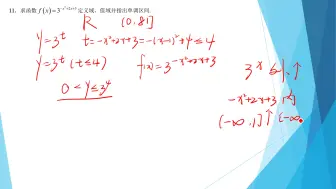 11、求函数 f(x)=3^{-x²+2x+3} 定义域、值域并指出单调区间.
R (0,81]
y=3^t t=-x²+2x+3=-(x-1)²+4≤4
y=3^t (t≤4) f(x)=3^{-x²+2x+3}
0<y≤3^4
3^x ↑
-x²+2x+3 内
(-∞,1]↑ (-∞